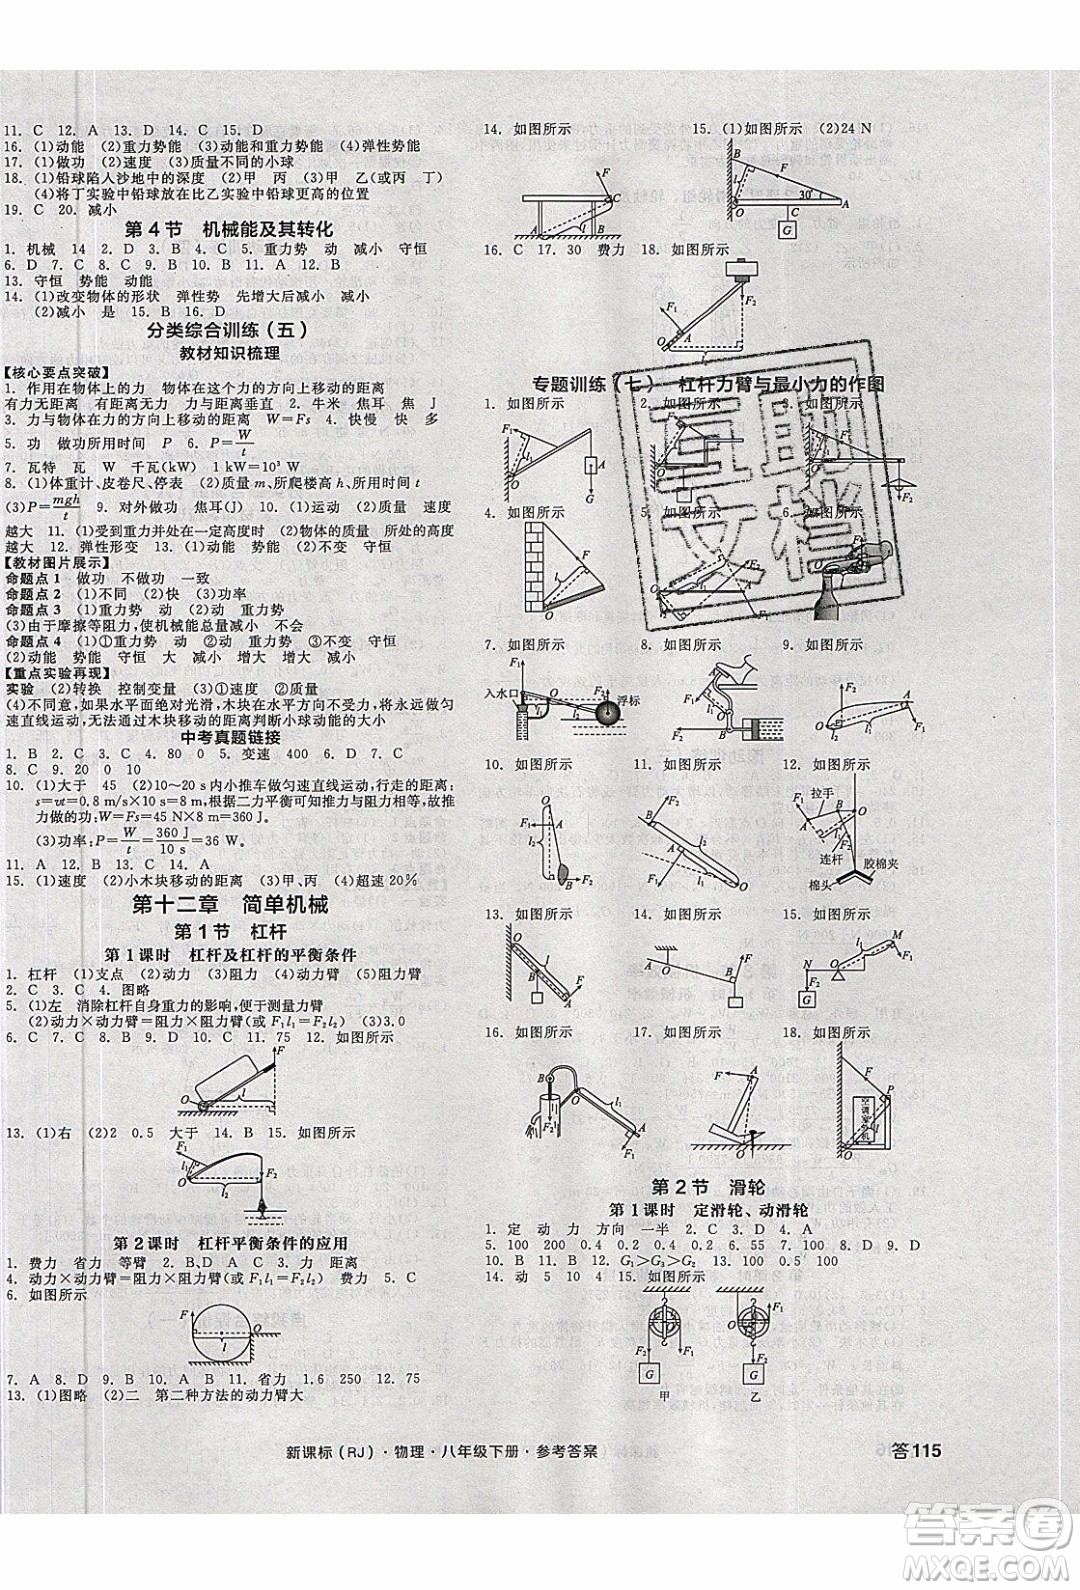 11. C  12. A  13. D  14. C  15. D
16. (1)动能  (2)重力势能  (3)动能和重力势能  (4)弹性势能
17. (1)做功  (2)速度  (3)质量不同的小球
18. (1)铅球陷入沙地中的深度  (2)甲  (3)甲  乙(或丙  丁)
(4)将丁实验中铅球放在比乙实验中铅球更高的位置
19. C  20. 减小
第4节  机械能及其转化
1. 机械  14  2. D  3. B  4. C  5. 重力势  动  减小  守恒
6. D  7. C  8. C  9. C  10. B  11. A  12. B
13. 守恒  势能  动能
14. (1)改变物体的形状  弹性势  先增大后减小  减小
(2)减小  是  15. B  16. D
分类综合训练(五)
教材知识梳理
【核心要点突破】
1. 作用在物体上的力  物体在这个力的方向上移动的距离
有力无距离  有距离无力  力与距离垂直  2. 牛米  焦耳  焦  J
3. 力与物体在力的方向上移动的距离  W=Fs  4. 快慢  快  多
5. 功  做功所用时间  P  6. P=W/t
7. 瓦特  瓦  W  千瓦(kW)  1 kW=10³ W
8. (1)体重计、皮卷尺、停表  (2)质量 m、所爬楼高 h、所用时间 t
(3)P=mgh/t  9. 对外做功  焦耳(J)  10. (1)运动  质量  速度
越大  11. (1)受到重力并处在一定高度时  (2)物体的质量  所处的高度
越大  12. 弹性形变  13. (1)动能  势能  (2)不变  守恒
【教材图片展示】
命题点1  做功  不做功  一致
命题点2  (1)不同  (2)快  (3)功率
命题点3  (1)重力势  动  (2)动  重力势
(3)由于摩擦等阻力,使机械能总量减小  不会
命题点4  (1)①重力势  动  ②动  重力势  ③不变  守恒
(2)动能  势能  守恒  大  减小  增大  减小  增大
【重点实验再现】
实验  (2)转换  控制变量  (3)①速度  ②质量
(4)不同意,如果水平面绝对光滑,木块在水平方向不受力,将永远做匀
速直线运动,无法通过木块移动的距离判断小球动能的大小
中考真题链接
1. B  2. C  3. C  4. 80  0  5. 变速  400  6. D  7. C
8. C  9. 20  0  10
10. (1)大于  45  (2)10～20 s内小推车做匀速直线运动,行走的距离:
s=vt=0.8 m/s×10 s=8 m,根据二力平衡可知推力与阻力相等,故推
力做的功:W=Fs=45 N×8 m=360 J。
(3)功率:P=W/t=360 J/10 s=36 W。
11. A  12. B  13. C  14. A
15. (1)速度  (2)小木块移动的距离  (3)甲、丙  (4)超速20%
第十二章  简单机械
第1节  杠杆
第1课时  杠杆及杠杆的平衡条件
1. 杠杆  (1)支点  (2)动力  (3)阻力  (4)动力臂  (5)阻力臂
2. C  3. C  4. 图略
5. (1)左  消除杠杆自身重力的影响,便于测量力臂
(2)动力×动力臂=阻力×阻力臂(或 F₁l₁=F₂l₂)  (3)3.0
6. C  7. C  8. B  9. D  10. C  11. 75  12. 如图所示
F
O
l
13. (1)右  (2)2  0.5  大于  14. B  15. 如图所示
F₁
l₁
O
l₂
F₂
第2课时  杠杆平衡条件的应用
1. 费力  省力  等臂  2. B、D  3. C  力  距离
4. 动力×动力臂=阻力×阻力臂(或 F₁l₁=F₂l₂)  费力  5. C
6. 如图所示
F
O
l
7. A  8. D  9. B  10. A  11. 省力  1.6  250  12. 75
13. (1)图略  (2)二  第二种方法的动力臂大
14. 如图所示  15. (1)如图所示  (2)24 N
F
C
A
l
B
B
F
l
O
30°
A
C
G
16. C  17. 30  费力  18. 如图所示
F₁
A
F₂
O
l₂
专题训练(七)  杠杆力臂与最小力的作图
1. 如图所示  2. 如图所示  3. 如图所示
F
l
O
A
G
4. 如图所示  5. 如图所示  6. 如图所示
A
F
O
7. 如图所示  8. 如图所示  9. 如图所示
入水口
浮标
10. 如图所示  11. 如图所示  12. 如图所示
拉手
连杆
胶棉夹
棉头
13. 如图所示  14. 如图所示  15. 如图所示
16. 如图所示  17. 如图所示  18. 如图所示
空调室外机
第2节  滑轮
第1课时  定滑轮、动滑轮
1. 定  动  力  方向  一半  2. C  3. D  4. D
5. 100  200  0.2  0.4  6. 0.2  0.4  7. 195  8. D  9. D
10. B  11. B  12. G₁>G₃>G₂  13. 100  100
14. 动  5  10  4  15. 如图所示
F₁
F₂
G
甲
F₁
F₂
G
乙
新课标(RJ)·物理·八年级下册·参考答案
答115
答案圈
MXQE.COM